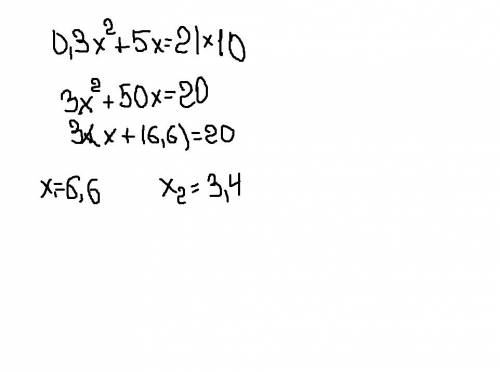 0,3x²+5x=2|×10
3x²+50x=20
3x(x+16,6)=20
x₁=6,6 x₂=3,4